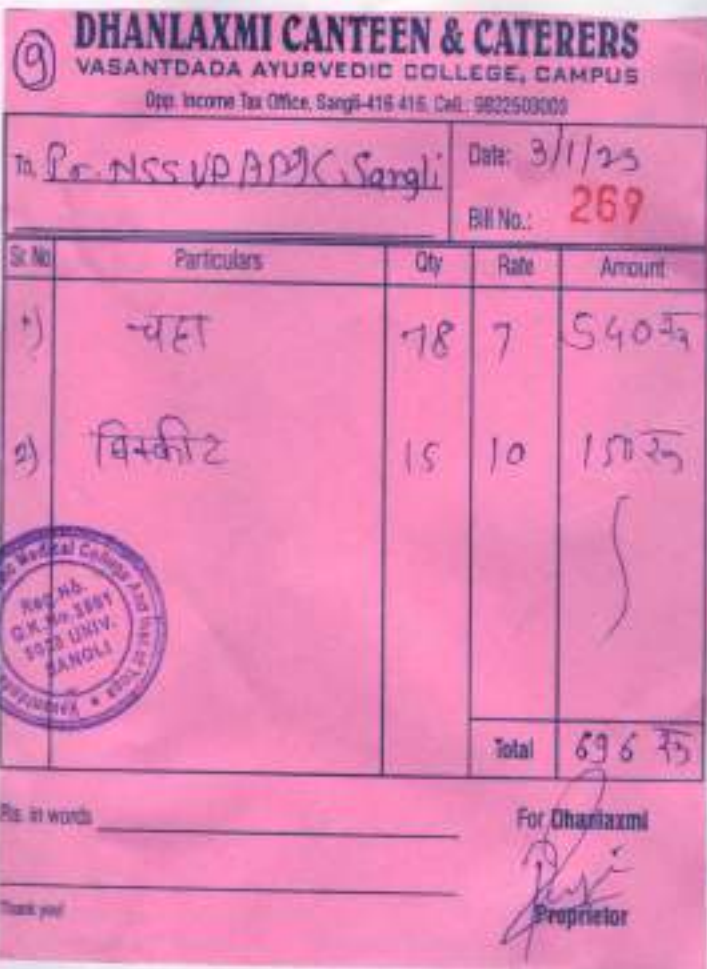 9
DHANLAXMI CANTEEN & CATERERS
VASANTDADA AYURVEDIC COLLEGE, CAMPUS
Opp. Income Tax Office, Sangli-416 416, Cell.: 9822503003
To, Pr. NSS VPAMC, Sangli
Date: 3/1/23
Bill No.: 269
Sr. No Particulars Qty Rate Amount
1) चहा 78 7 540 रु
2) बिस्कीट 15 10 150 रु
Medical College And
Reg. No.
5028 UNIV.
SANGLI
Total 696 रु
Rs. in words
For Dhanlaxmi
Proprietor
Thank you!